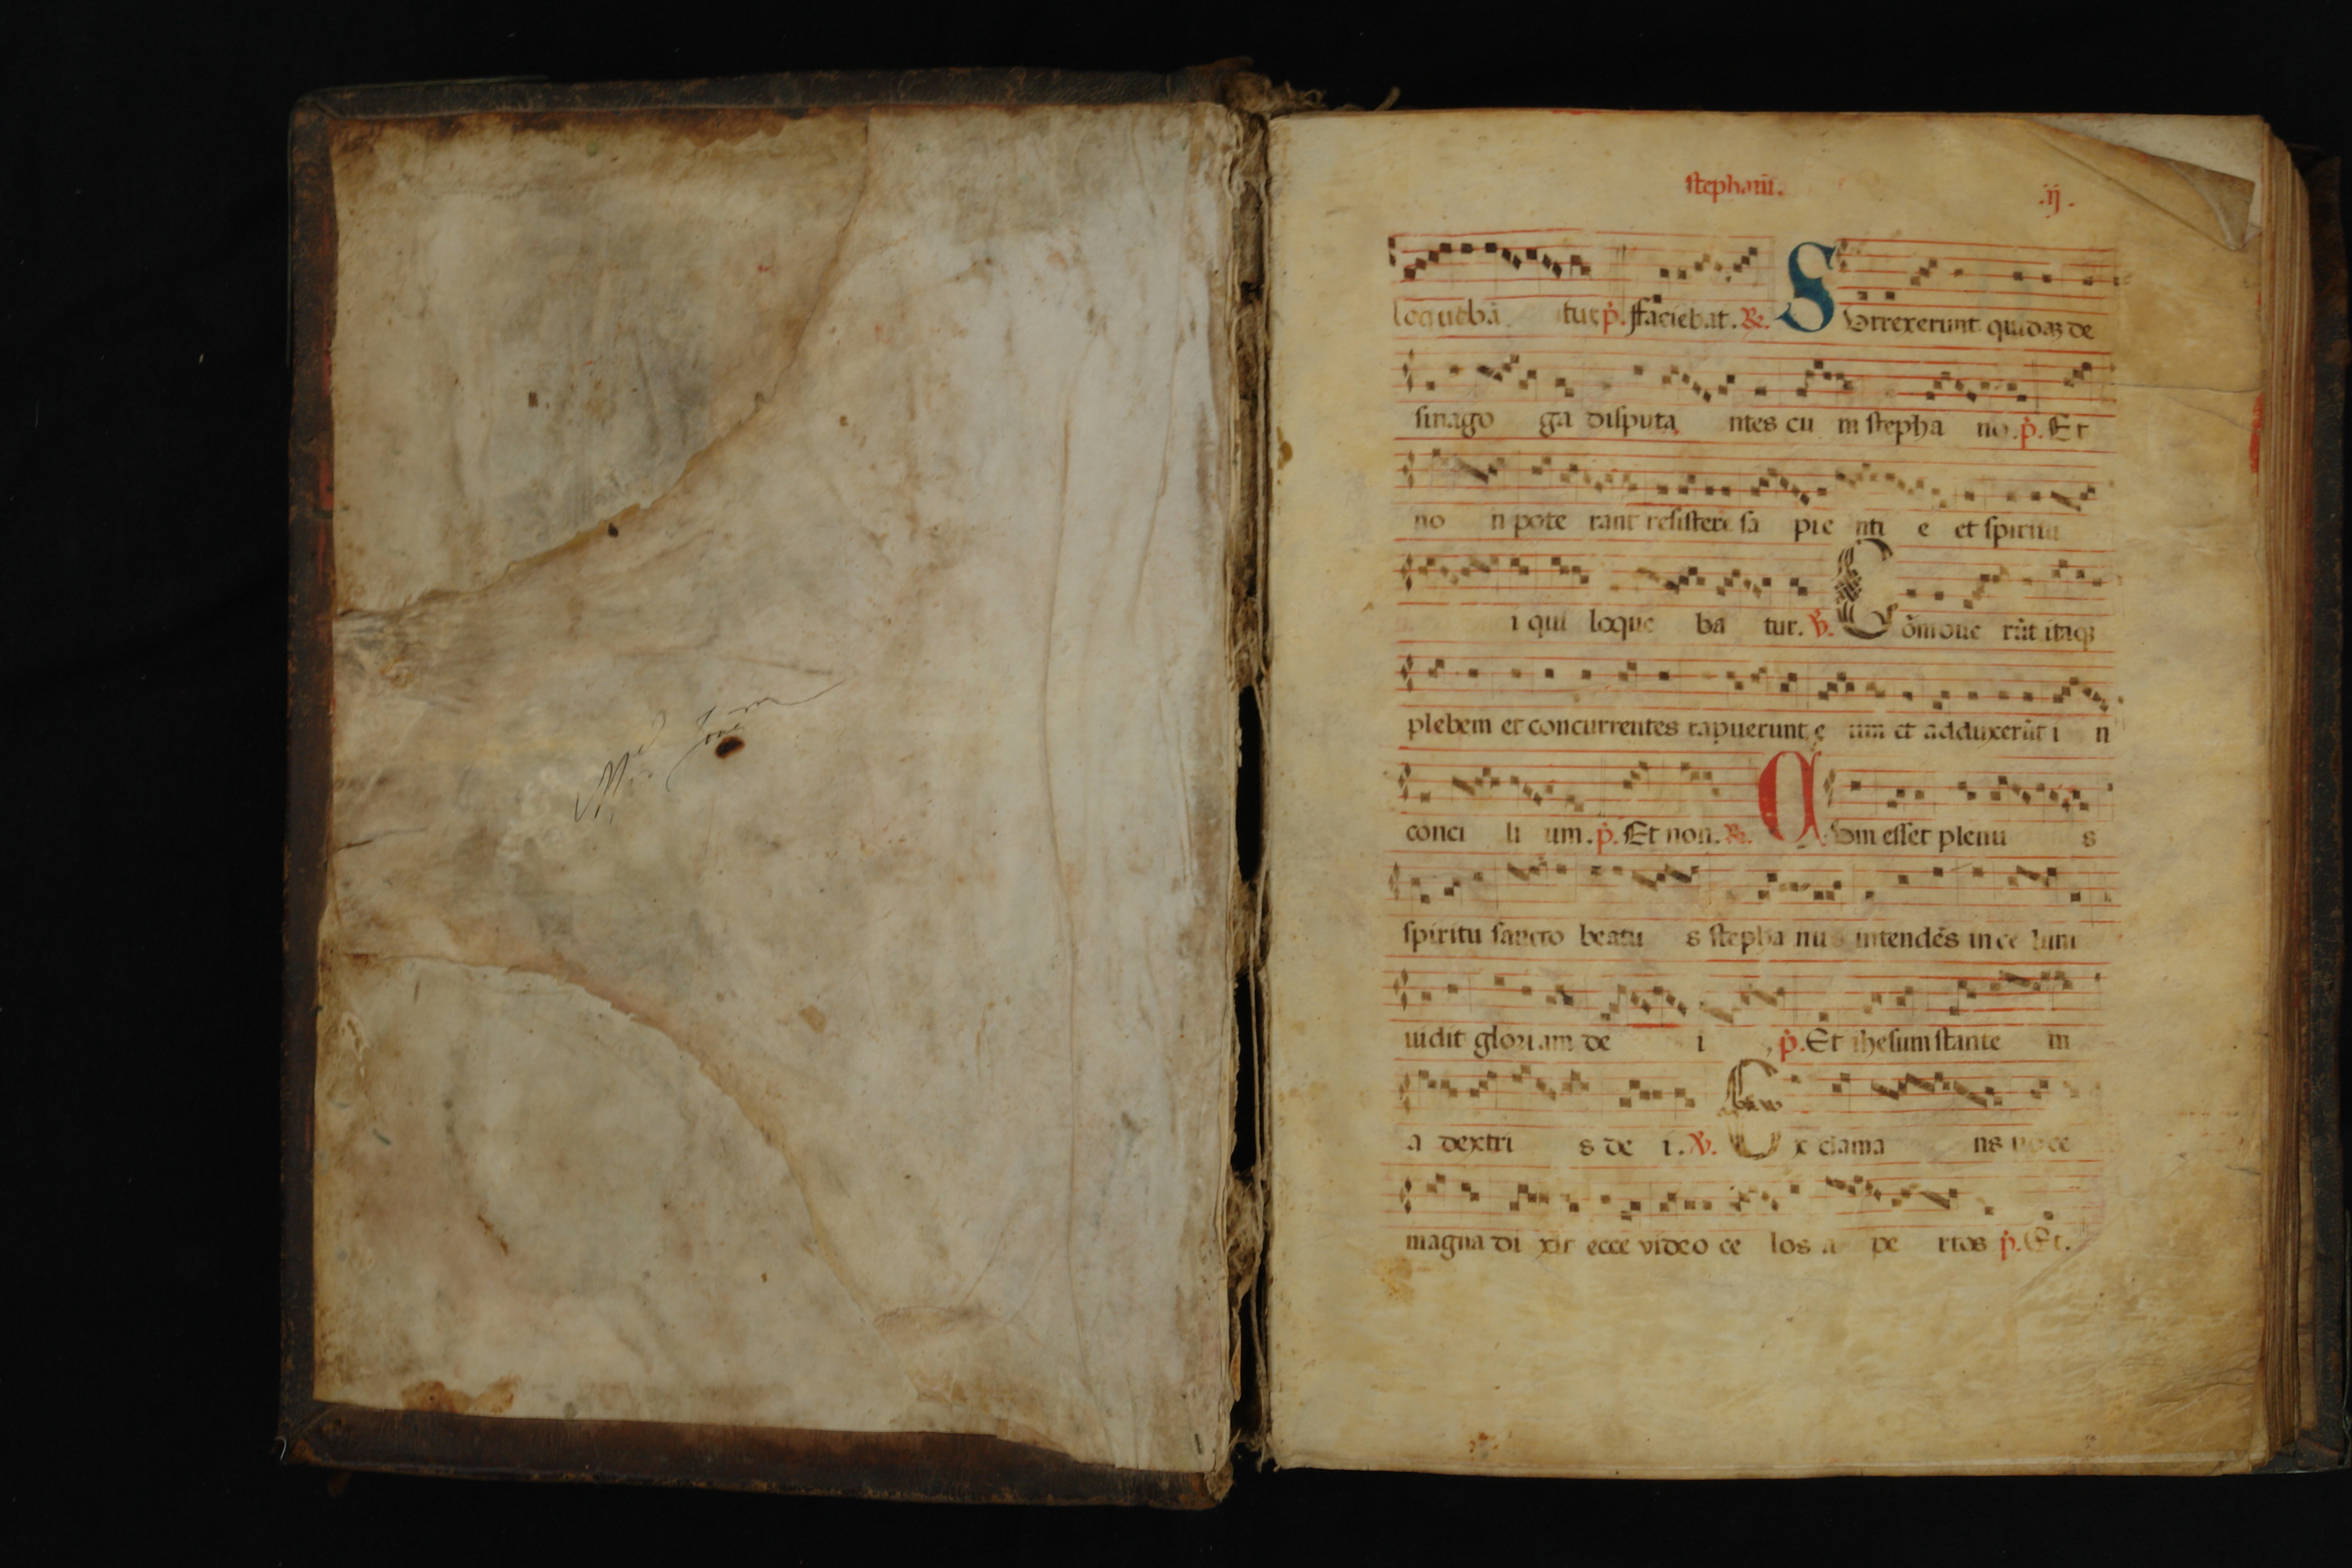 stephani.
.ij.
loquebā tur p̄. ffaciebat. R. Surrexerunt quidaʒ de
sinago ga disputa ntes cu m stepha no. p̄. Et
no n pote rant resistere sa pie nti e et spiritu
i qui loque ba tur. V. Cōmoue rūt itaqʒ
plebem et concurrentes rapuerunt e um et adduxerūt i n
conci li um. p̄. Et non. R. Cum esset plenu s
spiritu sancto beatu s stepha nus intendēs in ce lum
uidit gloriam de i p̄. Et ihesum stante m
a dextri s de i. V. Ex clama ns uoce
magna di xit ecce video ce los a pe rtos p̄. Et.